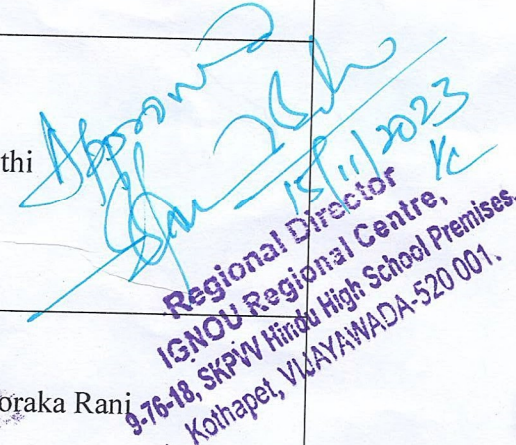 Approved
thi
15/11/2023
Regional Director
IGNOU Regional Centre,
9-76-18, SKPVV Hindu High School Premises,
Kothapet, VIJAYAWADA-520 001.
oraka Rani